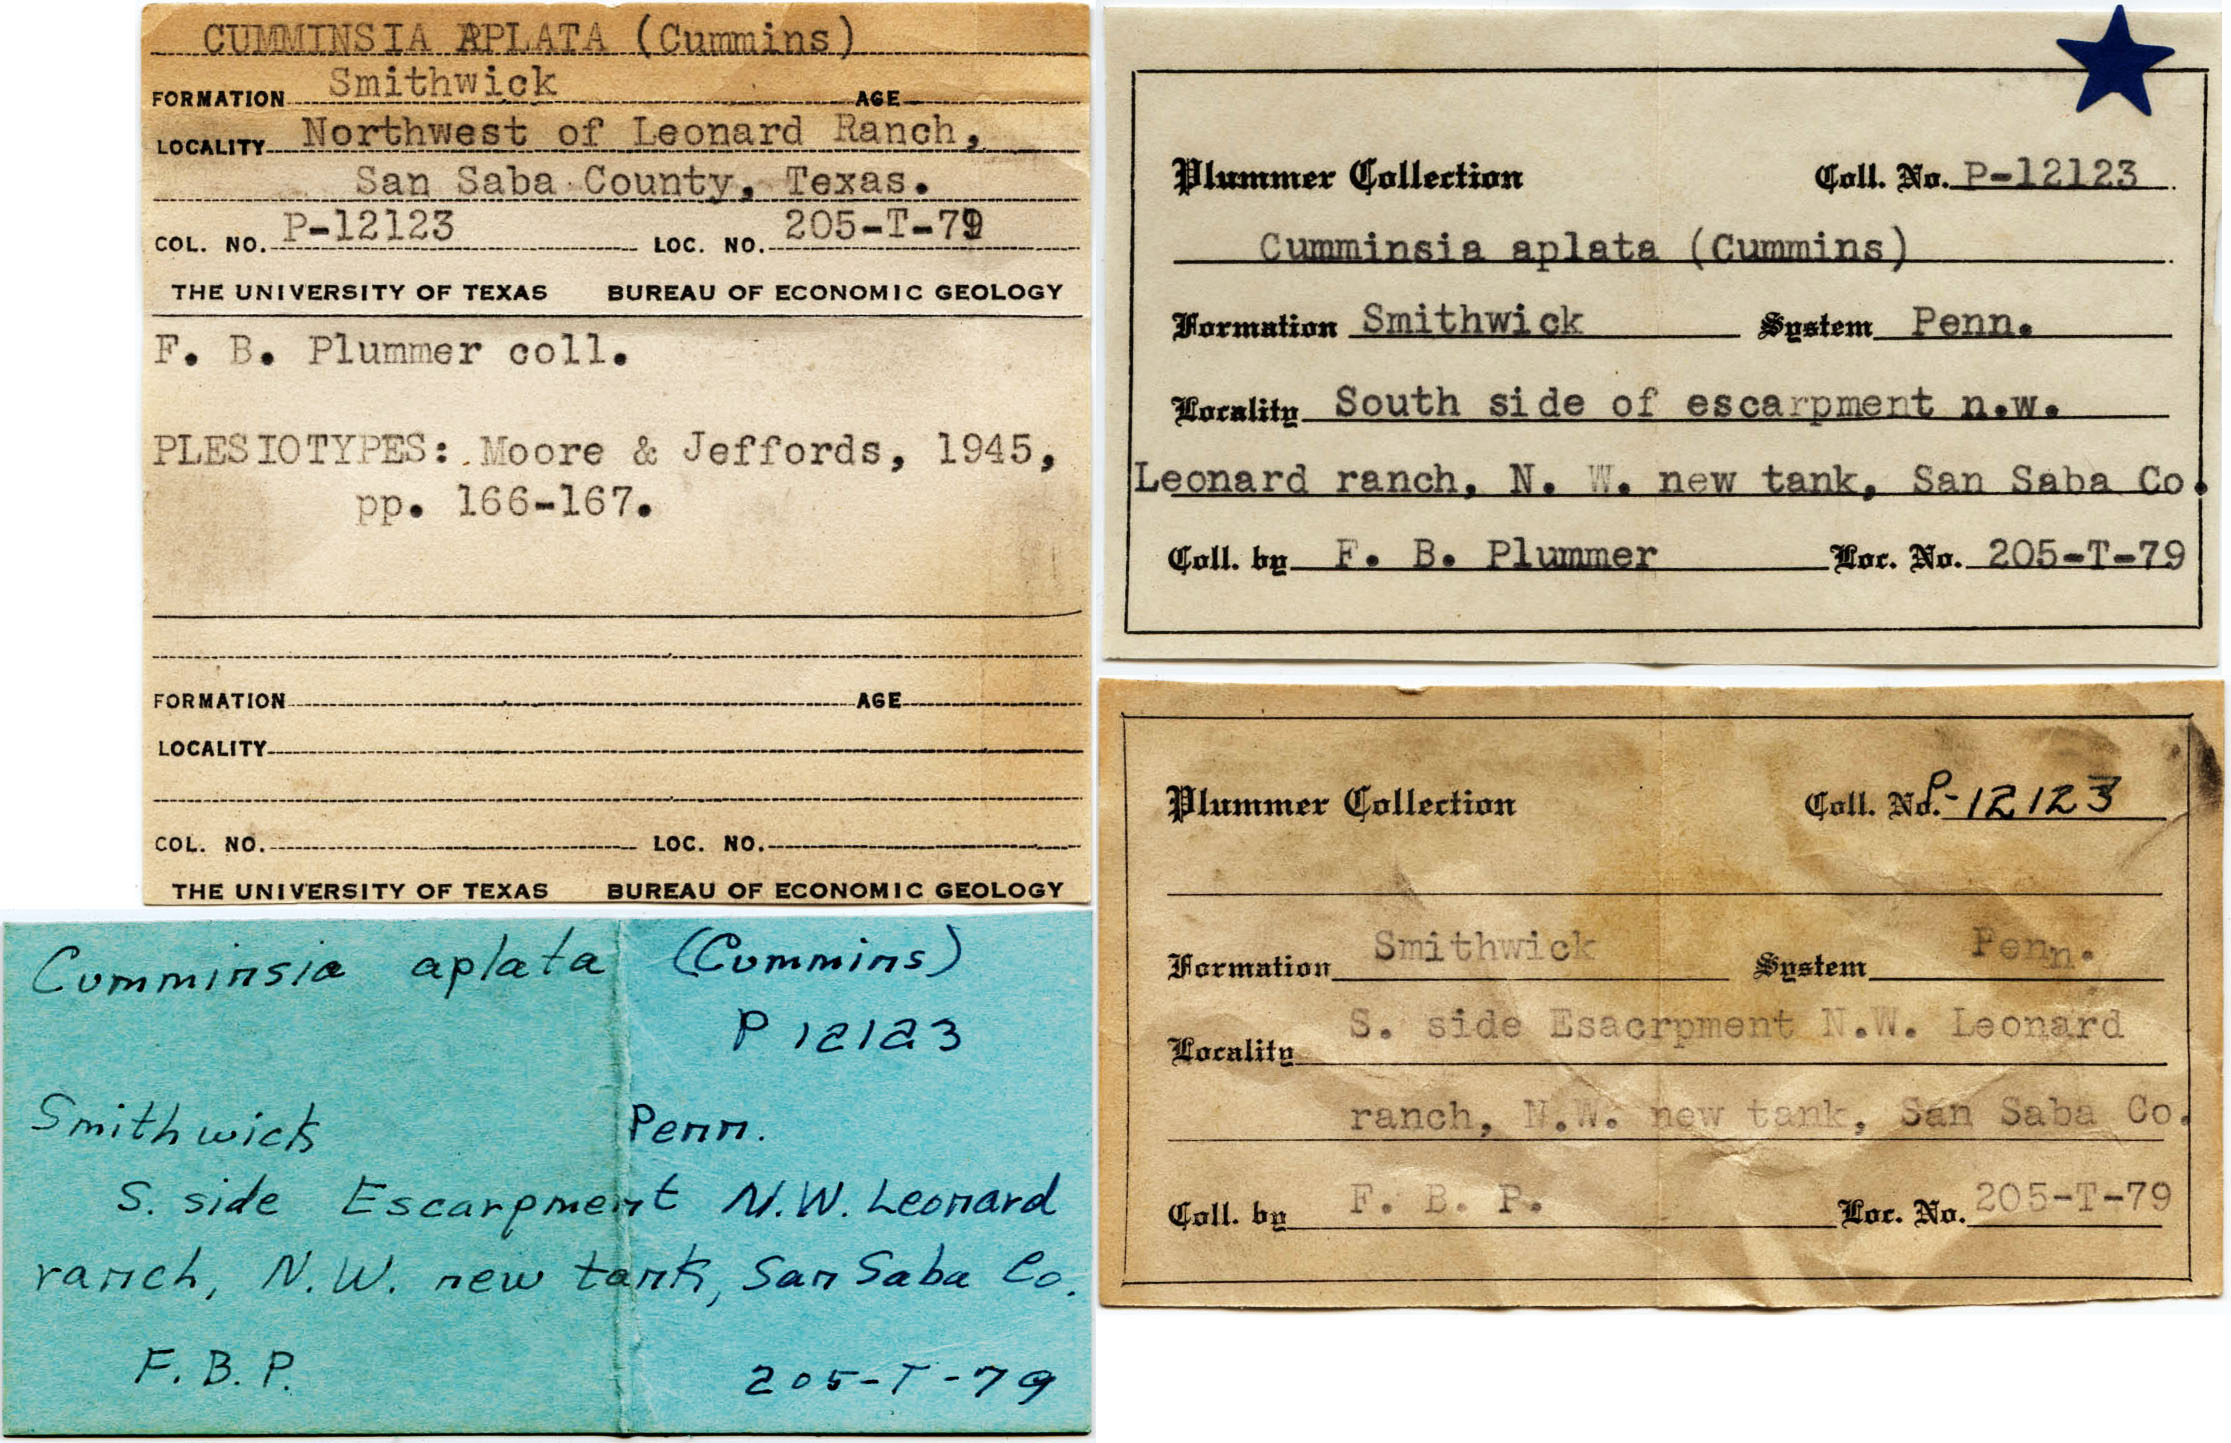 CUMMINSIA APLATA (Cummins)
FORMATION Smithwick AGE
LOCALITY Northwest of Leonard Ranch,
San Saba County, Texas.
COL. NO. P-12123 LOC. NO. 205-T-79
THE UNIVERSITY OF TEXAS BUREAU OF ECONOMIC GEOLOGY
F. B. Plummer coll.
PLESIOTYPES: Moore & Jeffords, 1945,
pp. 166-167.
FORMATION AGE
LOCALITY
COL. NO. LOC. NO.
THE UNIVERSITY OF TEXAS BUREAU OF ECONOMIC GEOLOGY
Plummer Collection Coll. No. P-12123
Cumminsia aplata (Cummins)
Formation Smithwick System Penn.
Locality South side of escarpment n.w.
Leonard ranch, N. W. new tank, San Saba Co.
Coll. by F. B. Plummer Loc. No. 205-T-79
Cumminsia aplata (Cummins)
P 12123
Smithwick Penn.
S. side Escarpment N.W. Leonard
ranch, N.W. new tank, San Saba Co.
F.B.P. 205-T-79
Plummer Collection Coll. No. P-12123
Formation Smithwick System Penn.
Locality S. side Esacrpment N.W. Leonard
ranch, N.W. new tank, San Saba Co.
Coll. by F. B. P. Loc. No. 205-T-79